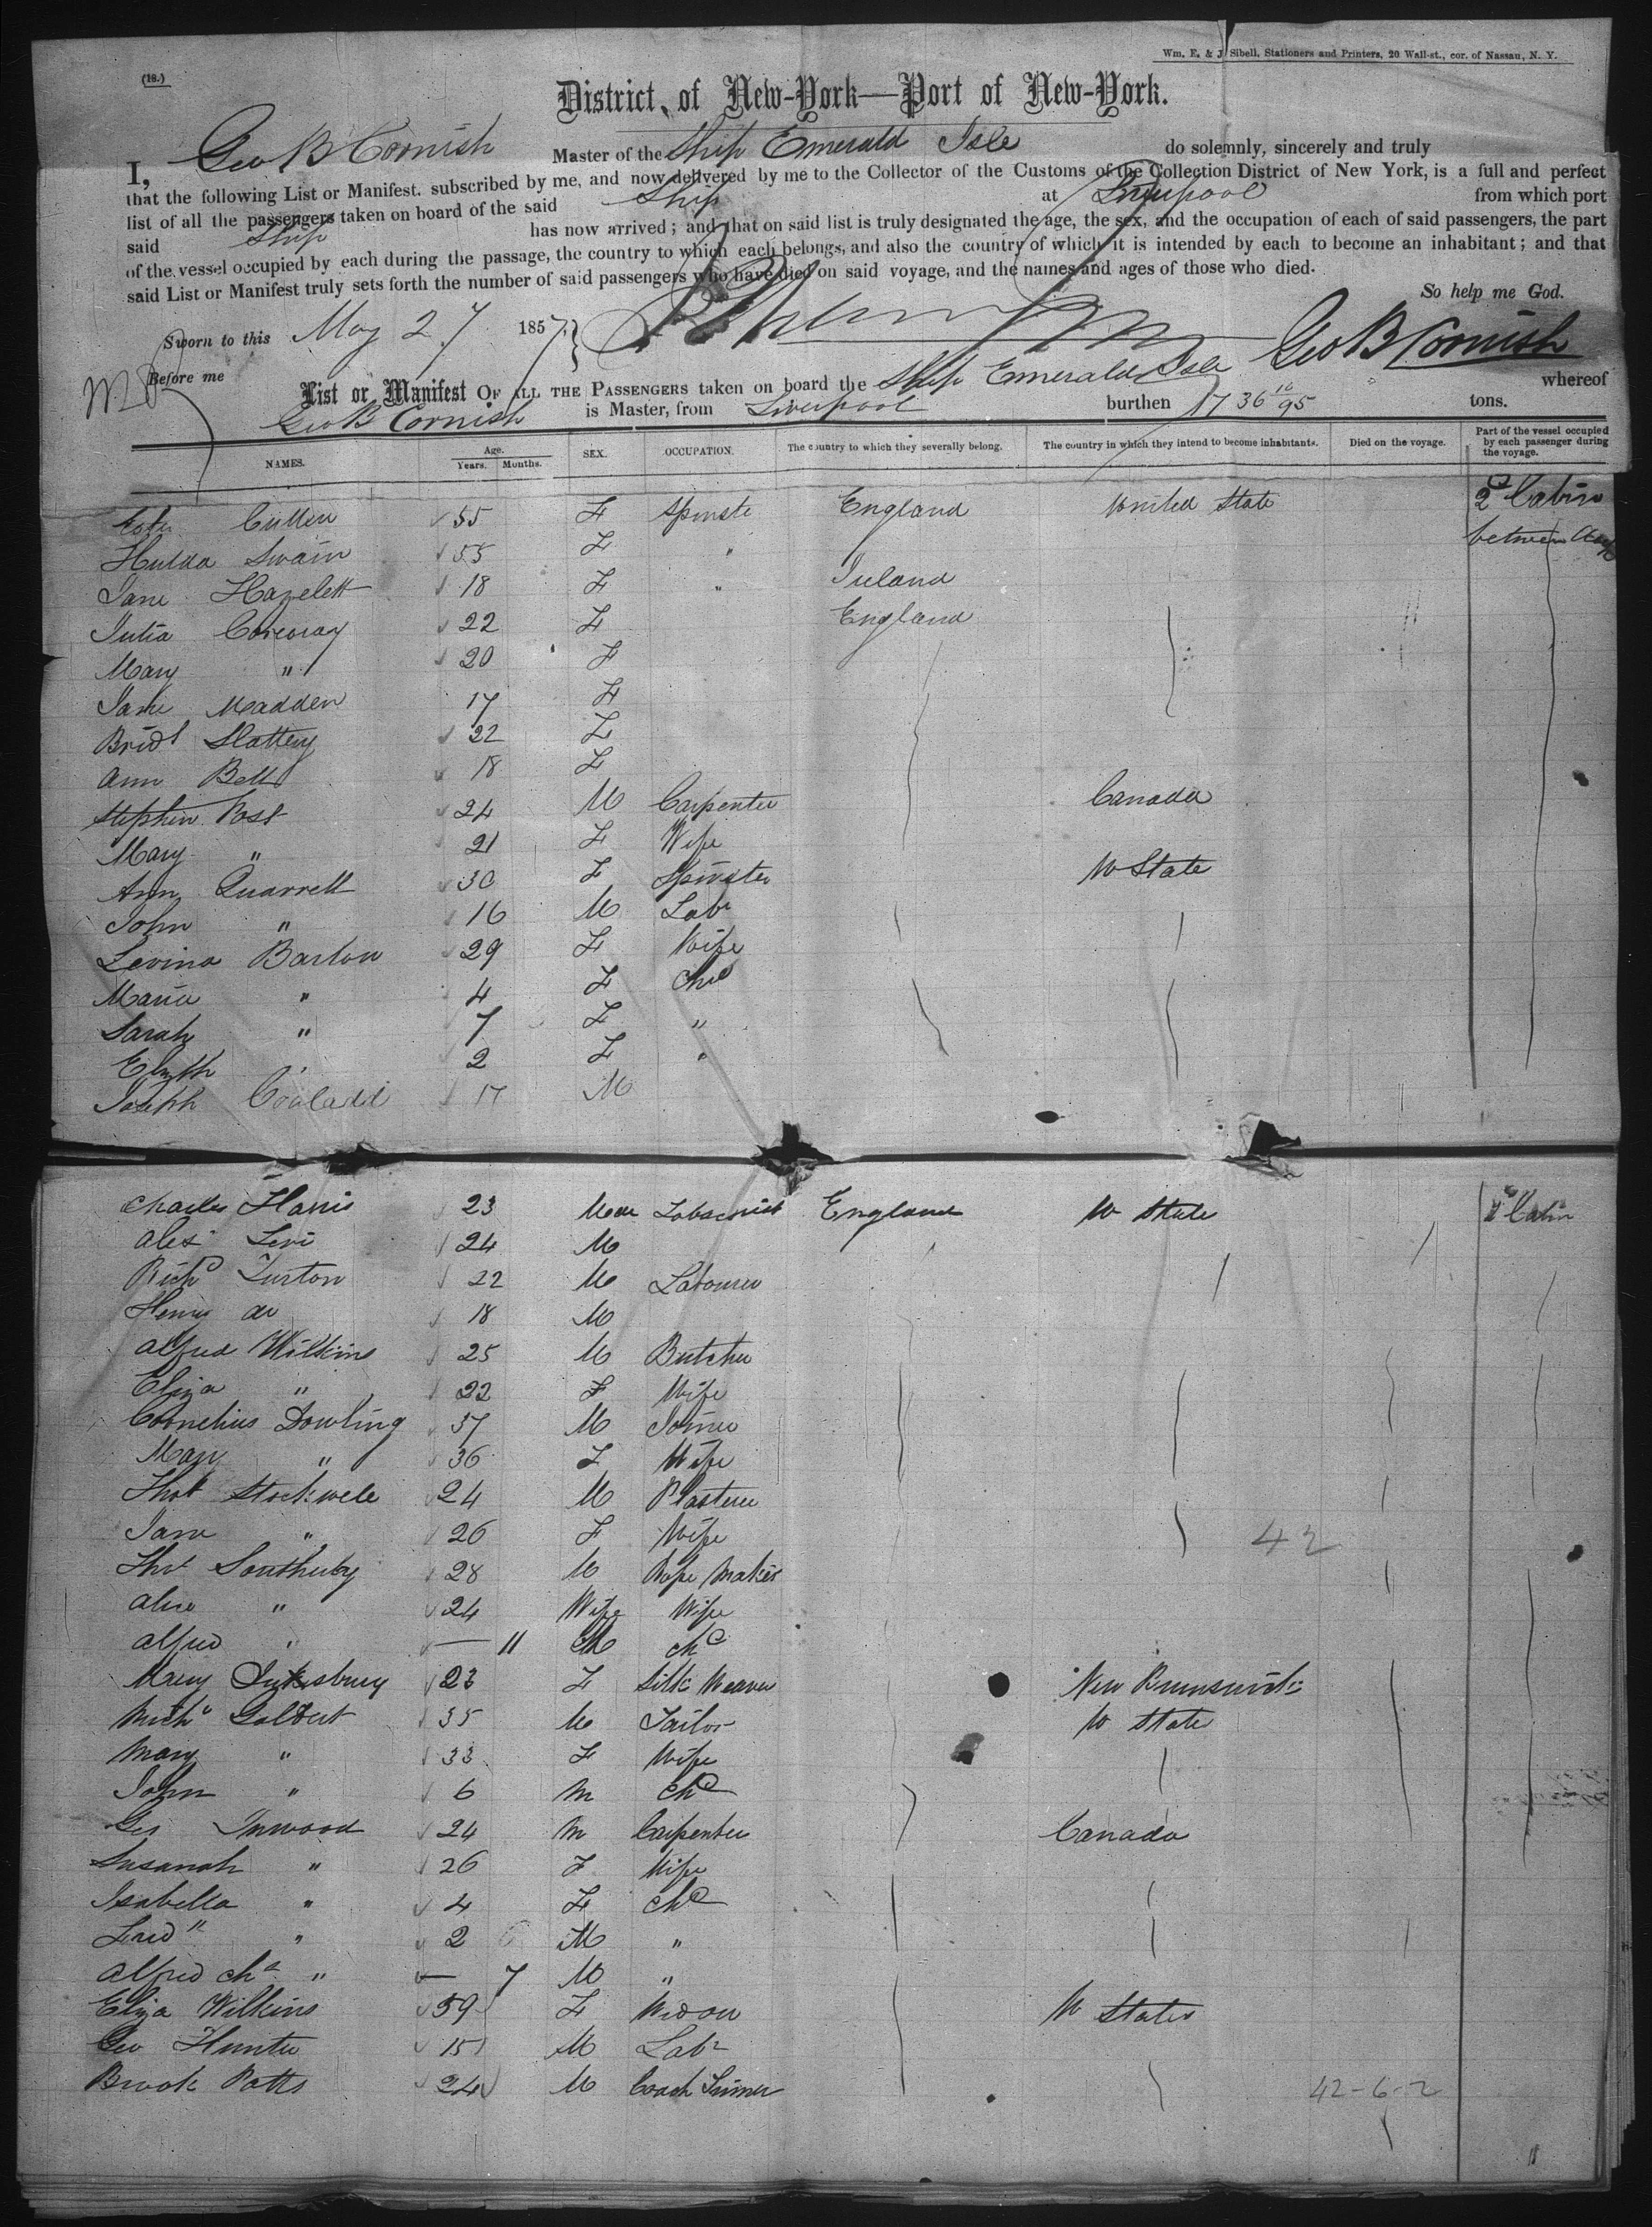 Wm. E. & J. Sibell, Stationers and Printers, 20 Wall-st., cor. of Nassau, N. Y.
(18.)
District of New-York—Port of New-York.
I, Geo B Cornish Master of the Ship Emerald Isle do solemnly, sincerely and truly
that the following List or Manifest, subscribed by me, and now delivered by me to the Collector of the Customs of the Collection District of New York, is a full and perfect
list of all the passengers taken on board of the said Ship at Liverpool from which port
said Ship has now arrived; and that on said list is truly designated the age, the sex, and the occupation of each of said passengers, the part
of the vessel occupied by each during the passage, the country to which each belongs, and also the country of which it is intended by each to become an inhabitant; and that
said List or Manifest truly sets forth the number of said passengers who have died on said voyage, and the names and ages of those who died.
So help me God.
Sworn to this May 27 1857
Geo B Cornish
Before me
List or Manifest OF ALL THE PASSENGERS taken on board the Ship Emerald Isle whereof
Geo B Cornish is Master, from Liverpool burthen 1736 10/95 tons.
NAMES. Age. Years. Months. SEX. OCCUPATION. The country to which they severally belong. The country in which they intend to become inhabitants. Died on the voyage. Part of the vessel occupied by each passenger during the voyage.
Cullen 55 F Spinste England United State 2d Cabin
Hulda Swain 55 F " between
Jane Hazelett 18 F " Ireland
Julia Corcoray 22 F England
Mary " 20 F
Jane Madden 17 F
Bridt Slattery 22 F
Ann Bell 18 F
Stephen Post 24 M Carpenter Canada
Mary " 21 F Wife
Ann Quarrell 30 F Spinster U State
John " 16 M Labr
Levina Barton 29 F Wife
Maria " 4 F Chd
Sarah " 7 F "
Elizth " 2 F "
Joseph 17 M
Charles Harris 23 M England U State 2d Cabin
Alex Levi 24 M
Richd Turton 22 M Labourer
Henry do 18 M
Alfred Wilkins 25 M Butcher
Eliza " 22 F Wife
Cornelius Dowling 37 M Joiner
Mary " 36 F Wife
Thos Stockwell 24 M Plasterer
Jane " 26 F Wife 42
Thos Southerby 28 M Rope Maker
Alice " 24 Wife Wife
Alfred " — 11 M chd
Mary 23 F Silk Weaver New Brunswick
Michl 35 M Tailor U State
Mary " 33 F Wife
John " 6 m chd
Geo Inwood 24 m Carpenter Canada
Susanah " 26 F Wife
Isabella " 4 F chd
Fred " 2 M "
Alfred chs " — 7 M "
Eliza Wilkins 59 F Widow U States
Geo Hunter 15 M Labr
Brook Potts 24 M Coach 42-6-2